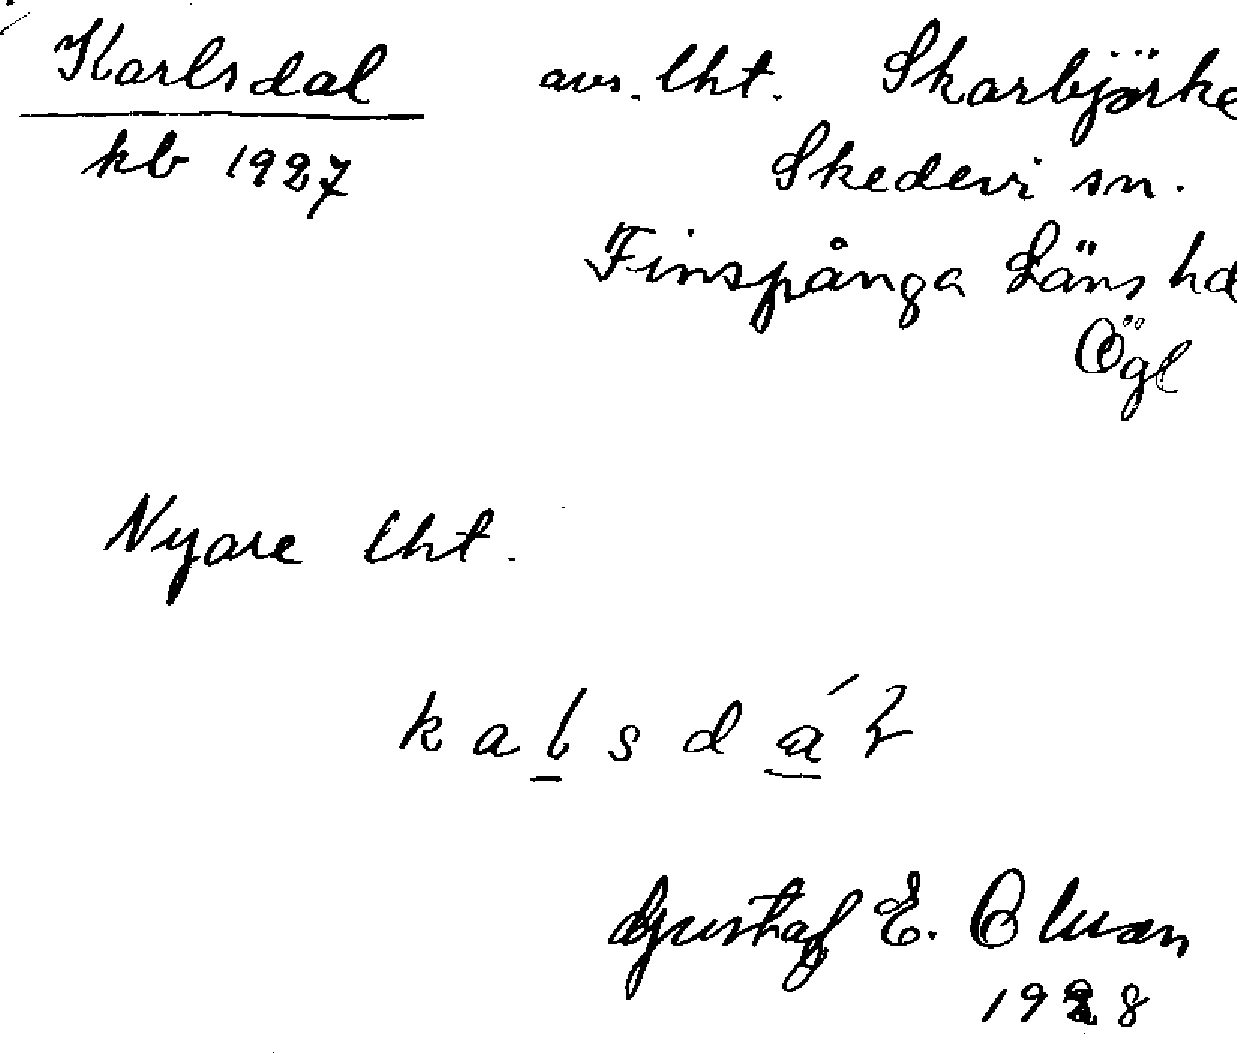 Karlsdal avs. lht. Skarbjörke
kb 1927 Skedevi sn.
Finspånga Läns hd
Ögl
Nyare lht.
Gustaf E. Olsson
1928